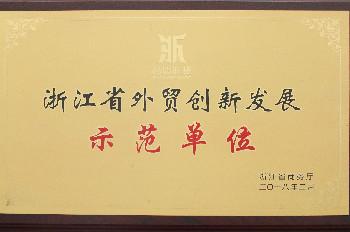 浙江省外贸创新发展
示范单位
浙江省商务厅
二〇一八年二月